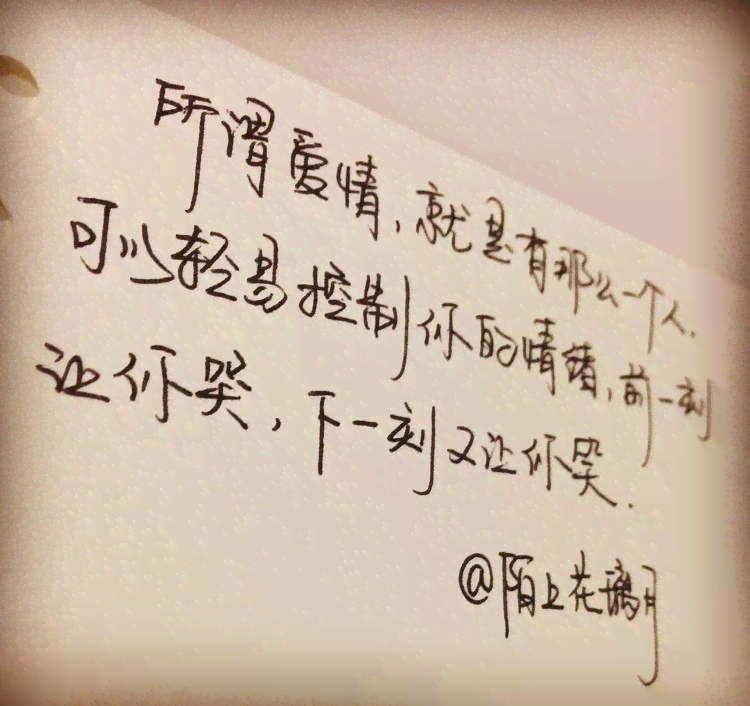 所谓爱情,就是有那么一个人.
可以轻易控制你的情绪,前一刻
让你哭,下一刻又让你哭.
@陌上花璃月